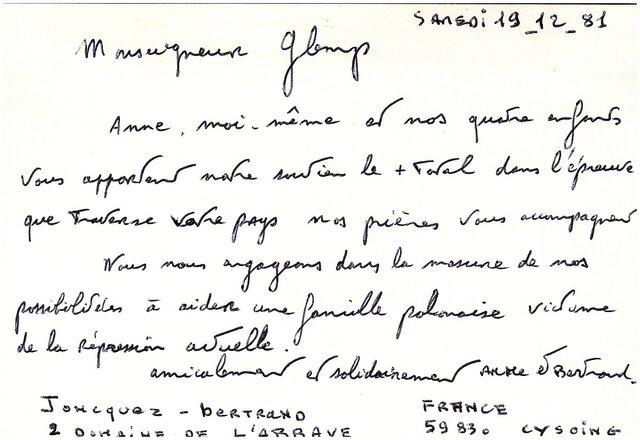 SAMEDI 19_12_81
Monseigneur Glemp
Anne, moi-même et nos quatre enfants
vous apportent notre soutien le + Total dans l'épreuve
que Traverse votre pays nos prières vous accompagnent
Nous nous engageons dans la mesure de nos
possibilitées à aider une famille polonaise victime
de la Répression actuelle.
amicalement et solidairement ANNE et Bertrand.
JONCQUEZ - bERTRAND
2 DOMAINE DE L'ARRAVE
FRANCE
59830 CYSOING